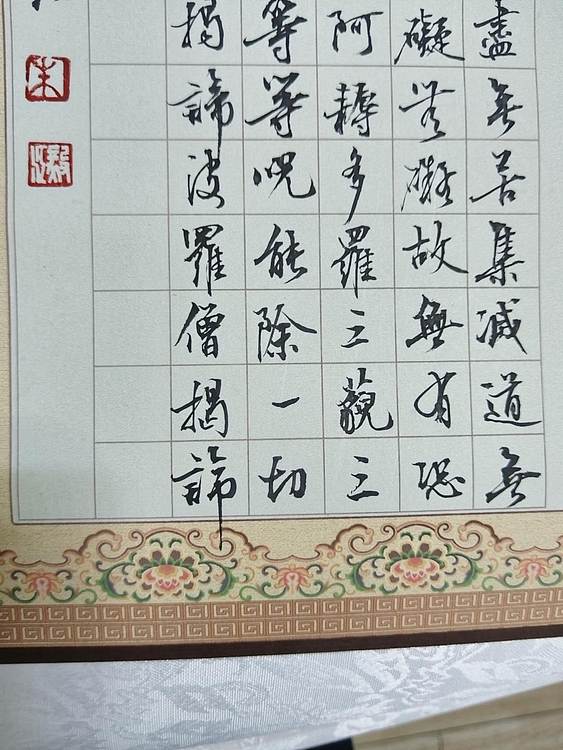 盡無苦集滅道無
礙無礙故無有恐
阿耨多羅三藐三
等等呪能除一切
揭諦波羅僧揭諦
朱